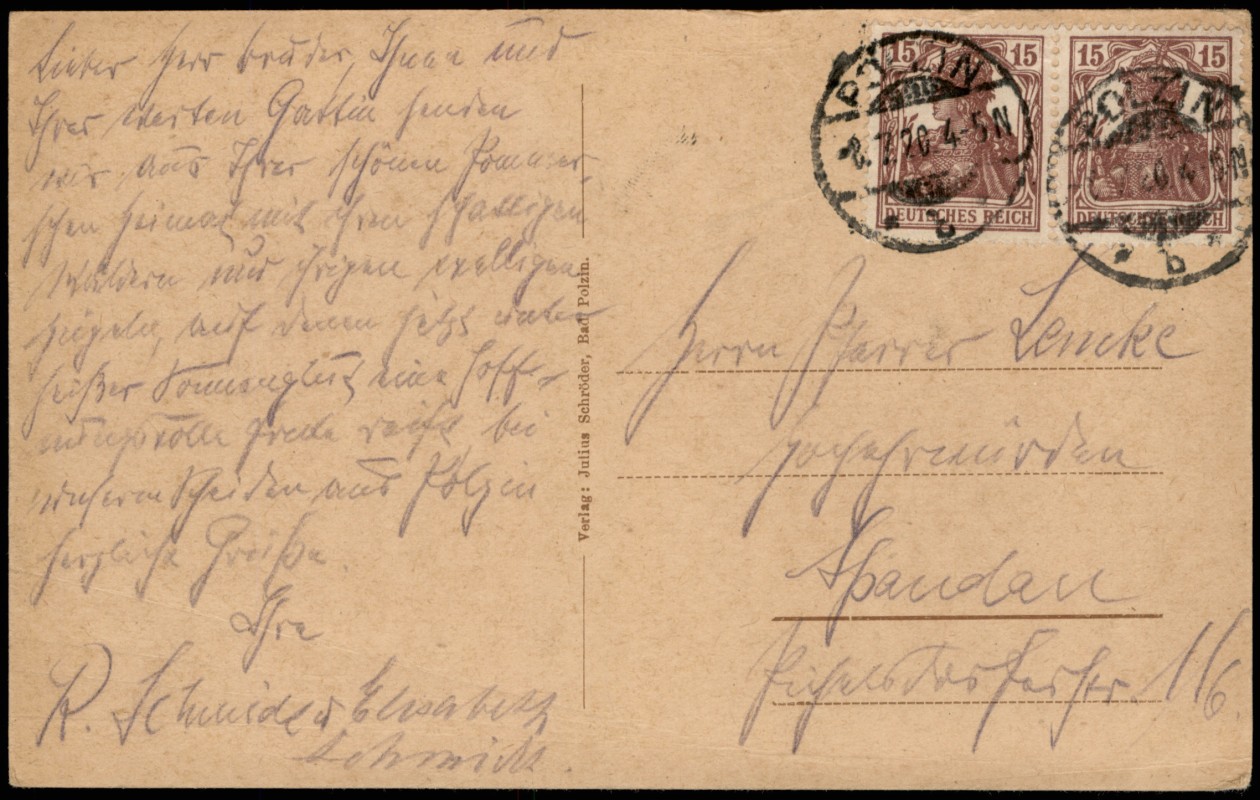 Lieber Herr Bruder, Ihnen und
Ihrer werten Gattin senden
wir aus Ihrer schönen Pommer-
schen Heimat mit ihren schattigen
Wäldern und ihrigen welligen
Hügeln, auf denen jetzt unter
heißer Sonnenglut eine hoff-
nungsvolle Ernte reift, bei
unserm Scheiden aus Polzin
herzliche Grüße.
Ihre
R. Schmidt u Elisabeth
Schmidt
Verlag: Julius Schröder, Bad Polzin.
15 15
DEUTSCHES REICH
15 15
DEUTSCHES REICH
POLZIN
8.7.20 4-5 N
* b
POLZIN
20 4-5 N
* b *
Herrn Pfarrer Lemcke
Hochehrwürden
Spandau
Pichelsdorferstr. 116